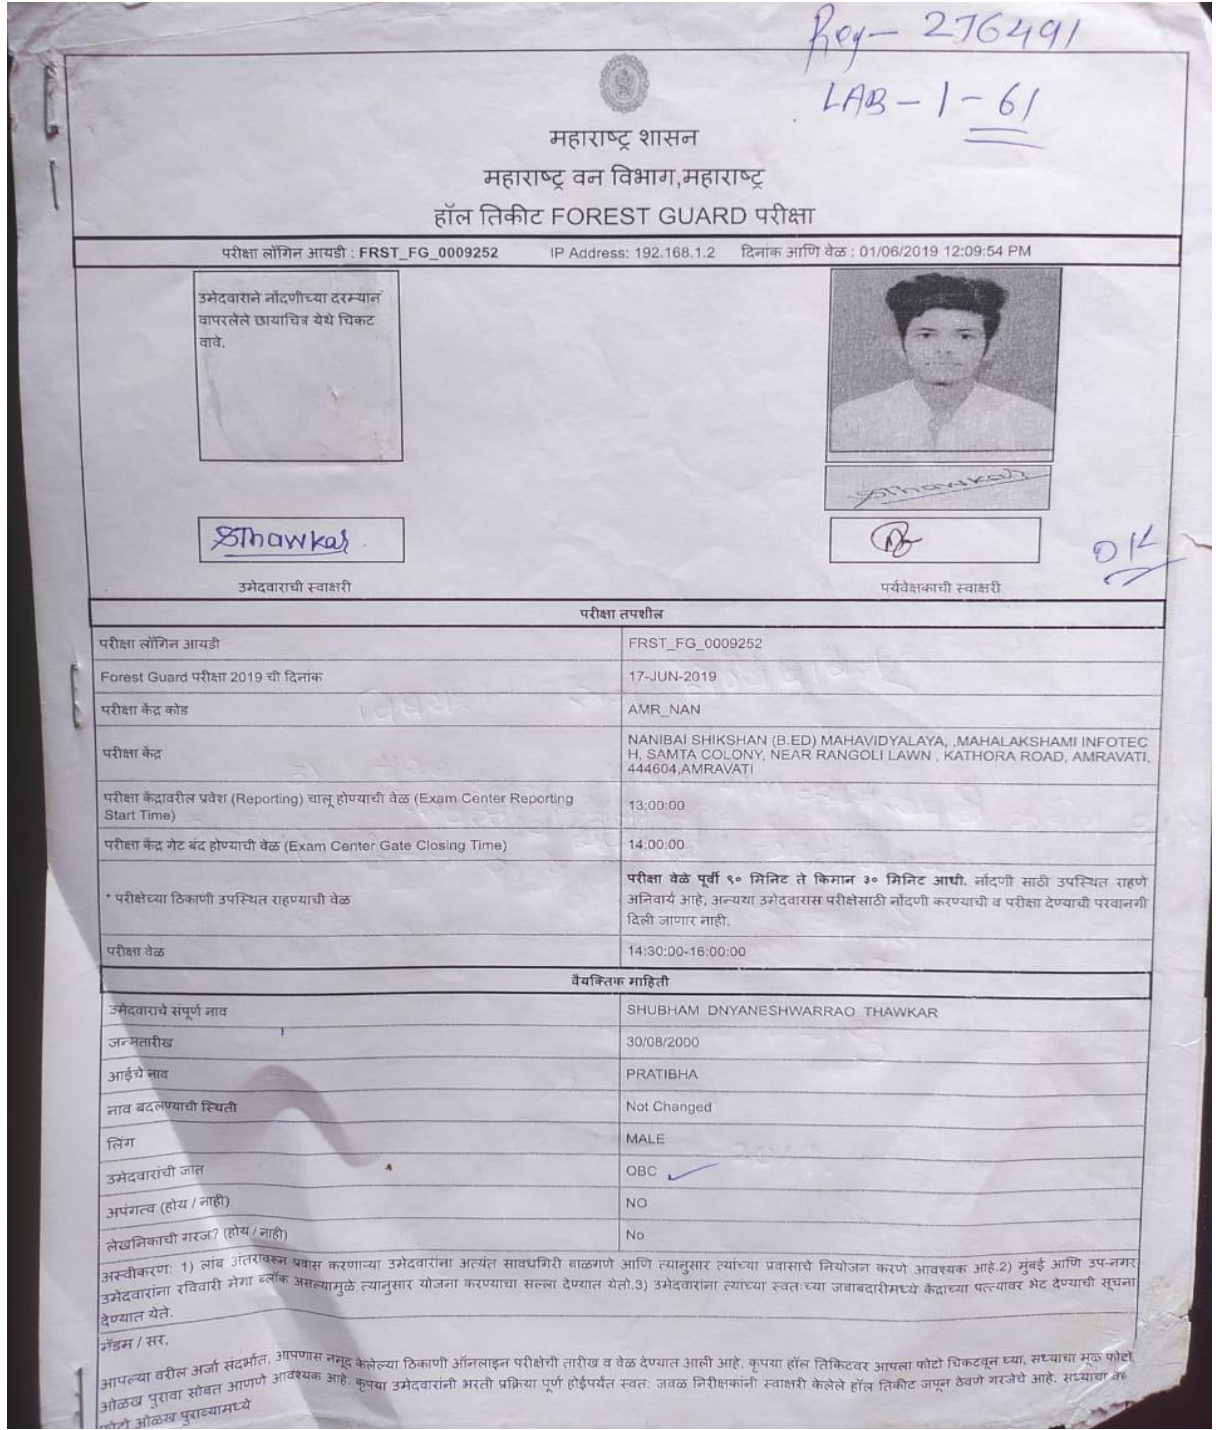 Reg- 276491
LAB - 1 - 61
महाराष्ट्र शासन
महाराष्ट्र वन विभाग,महाराष्ट्र
हॉल तिकीट FOREST GUARD परीक्षा
परीक्षा लॉगिन आयडी : FRST_FG_0009252 IP Address: 192.168.1.2 दिनांक आणि वेळ : 01/06/2019 12:09:54 PM
उमेदवाराने नोंदणीच्या दरम्यान
वापरलेले छायाचित्र येथे चिकट
वावे.
SThawkar
SThawkar
OK
उमेदवाराची स्वाक्षरी
पर्यवेक्षकाची स्वाक्षरी
परीक्षा तपशील
परीक्षा लॉगिन आयडी FRST_FG_0009252
Forest Guard परीक्षा 2019 ची दिनांक 17-JUN-2019
परीक्षा केंद्र कोड AMR_NAN
परीक्षा केंद्र
NANIBAI SHIKSHAN (B.ED) MAHAVIDYALAYA, ,MAHALAKSHAMI INFOTEC
H, SAMTA COLONY, NEAR RANGOLI LAWN , KATHORA ROAD, AMRAVATI,
444604,AMRAVATI
परीक्षा केंद्रावरील प्रवेश (Reporting) चालू होण्याची वेळ (Exam Center Reporting
Start Time)
13:00:00
परीक्षा केंद्र गेट बंद होण्याची वेळ (Exam Center Gate Closing Time) 14:00:00
* परीक्षेच्या ठिकाणी उपस्थित राहण्याची वेळ
परीक्षा वेळे पूर्वी ९० मिनिट ते किमान ३० मिनिट आधी. नोंदणी साठी उपस्थित राहणे
अनिवार्य आहे, अन्यथा उमेदवारास परीक्षेसाठी नोंदणी करण्याची व परीक्षा देण्याची परवानगी
दिली जाणार नाही.
परीक्षा वेळ 14:30:00-16:00:00
वैयक्तिक माहिती
उमेदवाराचे संपूर्ण नाव SHUBHAM DNYANESHWARRAO THAWKAR
जन्मतारीख 30/08/2000
आईचे नाव PRATIBHA
नाव बदलण्याची स्थिती Not Changed
लिंग MALE
उमेदवारांची जात OBC
अपंगत्व (होय / नाही) NO
लेखनिकाची गरज? (होय / नाही) No
अस्वीकरण: 1) लांब अंतरावरून प्रवास करणाऱ्या उमेदवारांना अत्यंत सावधगिरी बाळगणे आणि त्यानुसार त्यांच्या प्रवासाचे नियोजन करणे आवश्यक आहे.2) मुंबई आणि उप-नगर
उमेदवारांना रविवारी मेगा ब्लॉक असल्यामुळे त्यानुसार योजना करण्याचा सल्ला देण्यात येतो.3) उमेदवारांना त्यांच्या स्वतःच्या जबाबदारीमध्ये केंद्राच्या पत्त्यावर भेट देण्याची सूचना
देण्यात येते.
मॅडम / सर,
आपल्या वरील अर्जा संदर्भात, आपणास नमूद केलेल्या ठिकाणी ऑनलाइन परीक्षेची तारीख व वेळ देण्यात आली आहे. कृपया हॉल तिकिटवर आपला फोटो चिकटवून घ्या, सध्याचा मूळ फोटो
ओळख पुरावा सोबत आणणे आवश्यक आहे. कृपया उमेदवारांनी भरती प्रक्रिया पूर्ण होईपर्यंत स्वत: जवळ निरीक्षकांनी स्वाक्षरी केलेले हॉल तिकीट जपून ठेवणे गरजेचे आहे. सध्याचा
फोटो ओळख पुराव्यामध्ये